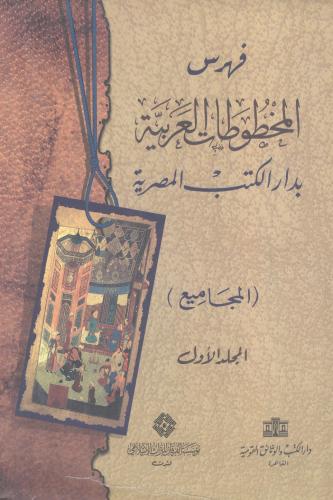 فهرس
المخطوطات العربية
بدار الكتب المصرية
(المجاميع)
المجلد الأول
مؤسسة الفرقان للتراث الإسلامي
دار الكتب والوثائق القومية
القاهرة